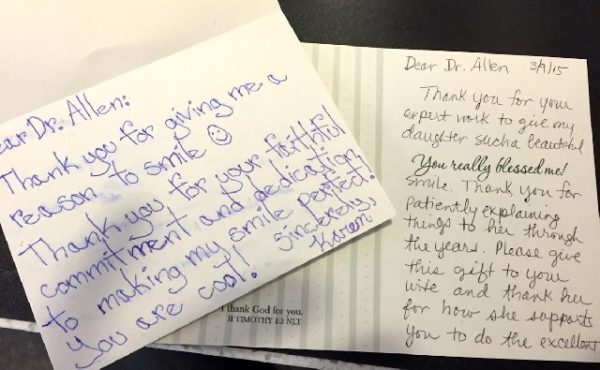 ear Dr. Allen:
Thank you for giving me a
reason to smile ☺
Thank you for your faithful
commitment and dedication
to making my smile perfect!
You are cool! Sincerely,
Karen
I thank God for you.
II TIMOTHY 1:3 NLT
Dear Dr. Allen 3/9/15
Thank you for your
expert work to give my
daughter such a beautiful
You really blessed me!
smile. Thank you for
patiently explaining
things to her through
the years. Please give
this gift to your
wife and thank her
for how she supports
you to do the excellent